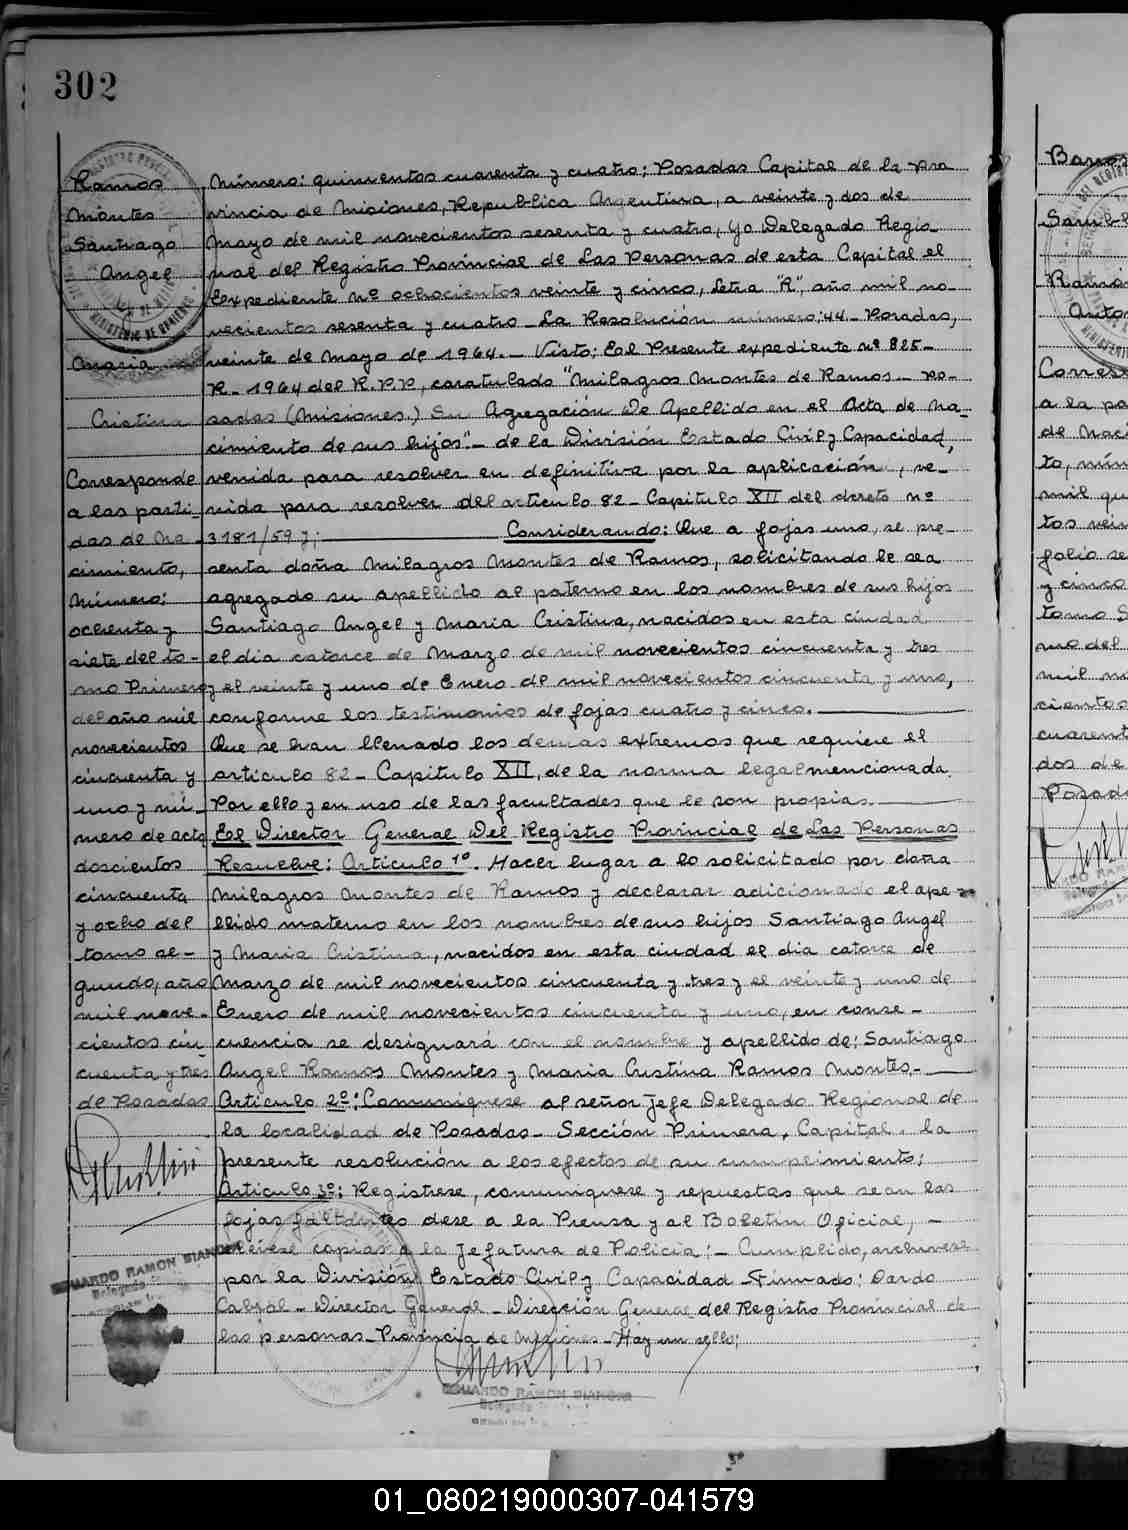 302
Ramos
Montes
Santiago
Angel
Maria
Cristina
Corresponde
a las parti-
das de na-
cimiento,
número:
ochenta y
siete del to-
mo Primero
del año mil
novecientos
cincuenta y
uno y nú-
mero de acta
doscientos
cincuenta
y ocho del
tomo se-
gundo, año
mil nove-
cientos cin-
cuenta y tres
de Posadas
EDUARDO RAMON BIANCHI
Número: quinientos cuarenta y cuatro; Posadas Capital de la Pro
vincia de Misiones, Republica Argentina, a veinte y dos de
Mayo de mil novecientos sesenta y cuatro, yo Delegado Regio
nal del Registro Provincial de Las Personas de esta Capital el
Expediente nº ochocientos veinte y cinco, Letra "R", año mil no-
vecientos sesenta y cuatro - La Resolución número; 44 - Posadas,
veinte de Mayo de 1964. - Visto; El Presente expediente nº 825-
R - 1964 del R.P.P, caratulado "Milagros Montes de Ramos - Po-
sadas (Misiones) Su Agregación De Apellido en el Acta de Na-
cimiento de sus hijos". - de la División Estado Civil y Capacidad,
venida para resolver en definitiva por la aplicación , ve-
nida para resolver del articulo 82 - Capitulo XII del decreto nº
3181/59 y; Considerando: Que a fojas uno, se pre-
senta doña Milagros Montes de Ramos, solicitando le sea
agregado su apellido al paterno en los nombres de sus hijos
Santiago Angel y Maria Cristina, nacidos en esta ciudad
el dia catorce de Marzo de mil novecientos cincuenta y tres
y el veinte y uno de Enero de mil novecientos cincuenta y uno,
conforme los testimonios de fojas cuatro y cinco.
Que se han llenado los demas extremos que requiere el
articulo 82 - Capitulo XII, de la norma legal mencionada
Por ello y en uso de las facultades que le son propias
El Director General Del Registro Provincial de Las Personas
Resuelve: Articulo 1º. Hacer lugar a lo solicitado por doña
Milagros Montes de Ramos y declarar adicionado el ape-
llido materno en los nombres de sus hijos Santiago Angel
y Maria Cristina, nacidos en esta ciudad el dia catorce de
Marzo de mil novecientos cincuenta y tres y el veinte y uno de
Enero de mil novecientos cincuenta y uno, en conse-
cuencia se designará con el nombre y apellido de: Santiago
Angel Ramos Montes y Maria Cristina Ramos Montes.-
Articulo 2º: Comuniquese al señor Jefe Delegado Regional de
la localidad de Posadas - Sección Primera, Capital, la
presente resolución a los efectos de su cumplimiento;
Articulo 3º: Registrese, comuniquese y repuestas que sean las
fojas faltantes dese a la Prensa y al Boletin Oficial, -
copias a la Jefatura de Policia; - Cumplido, archivese
por la División Estado Civil y Capacidad - Firmado: Dardo
Cabral - Director General - Dirección General del Registro Provincial de
las personas - Provincia de Misiones - Hay un sello;
EDUARDO RAMON BIANCHI
Corres
a la pa
de naci
to, núm
mil qu
tos vein
folio se
y cinco
tomo S
mo del
mil no
cientos
cuarent
dos de
Posada
01_080219000307-041579